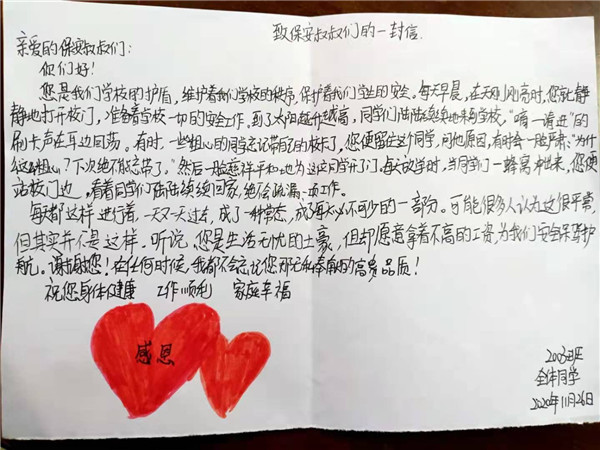 致保安叔叔们的一封信.
亲爱的保安叔叔们：
你们好！
您是我们学校的护盾，维护着我们学校的秩序，保护着我们学生的安全。每天早晨，在天刚刚亮时，您就静
静地打开校门，准备着学校一切的安全工作。到了太阳越升越高，同学们陆陆续续地来到学校。“嘀一请进”的
刷卡声在耳边回荡。有时，一些粗心的同学忘记带了的校卡了，您便留住这个同学，问他原因，有时会一脸严肃：“为什
么这么粗心？下次绝不能忘带了。”然后一脸慈祥平和地为这同学开了门。每次放学时，当同学们一蜂窝冲出来，您便
站校门边，看着同学们陆陆续续回家，绝不会疏漏一点工作。
每天都这样进行着，一天又一天过去，成了一种常态，成了每天必不可少的一部分。可能很多人认为这很平常，
但其实并不是这样。听说，您是生活无忧的土豪，但却愿意拿着不高的工资，为我们安全保驾护
航。谢谢您！在任何时候，我都不会忘记您那无私奉献的高贵品质！
祝您身体健康 工作顺利 家庭幸福
感恩
2003班
全体同学
2020年11月26日